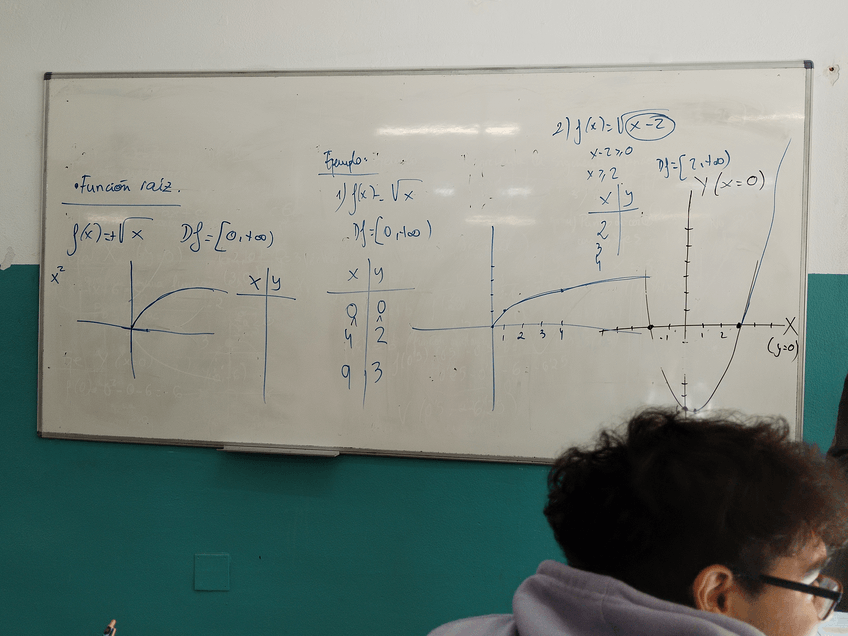 • Función raíz.
f(x)=+√x Df=[0,+∞)
x²
x y
Ejemplo:
1) f(x)=√x
Df=[0,+∞)
x y
0 0
1 1
4 2
9 3
1 2 3 4
2) f(x)=√x-2
x-2≥0
x≥2
Df=[2,+∞)
x y
2
3
4
Y (x=0)
-1 1 2
X
(y=0)